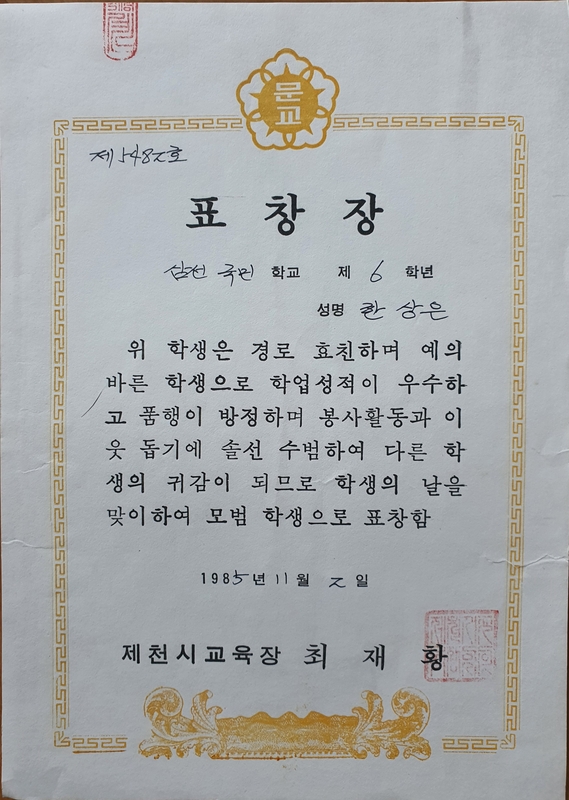 문교
제5482호
표창장
삼선 국민 학교 제 6 학년
성명 한상은
위 학생은 경로 효친하며 예의
바른 학생으로 학업성적이 우수하
고 품행이 방정하며 봉사활동과 이
웃 돕기에 솔선 수범하여 다른 학
생의 귀감이 되므로 학생의 날을
맞이하여 모범 학생으로 표창함
1985년 11월 2일
제천시교육장 최재황